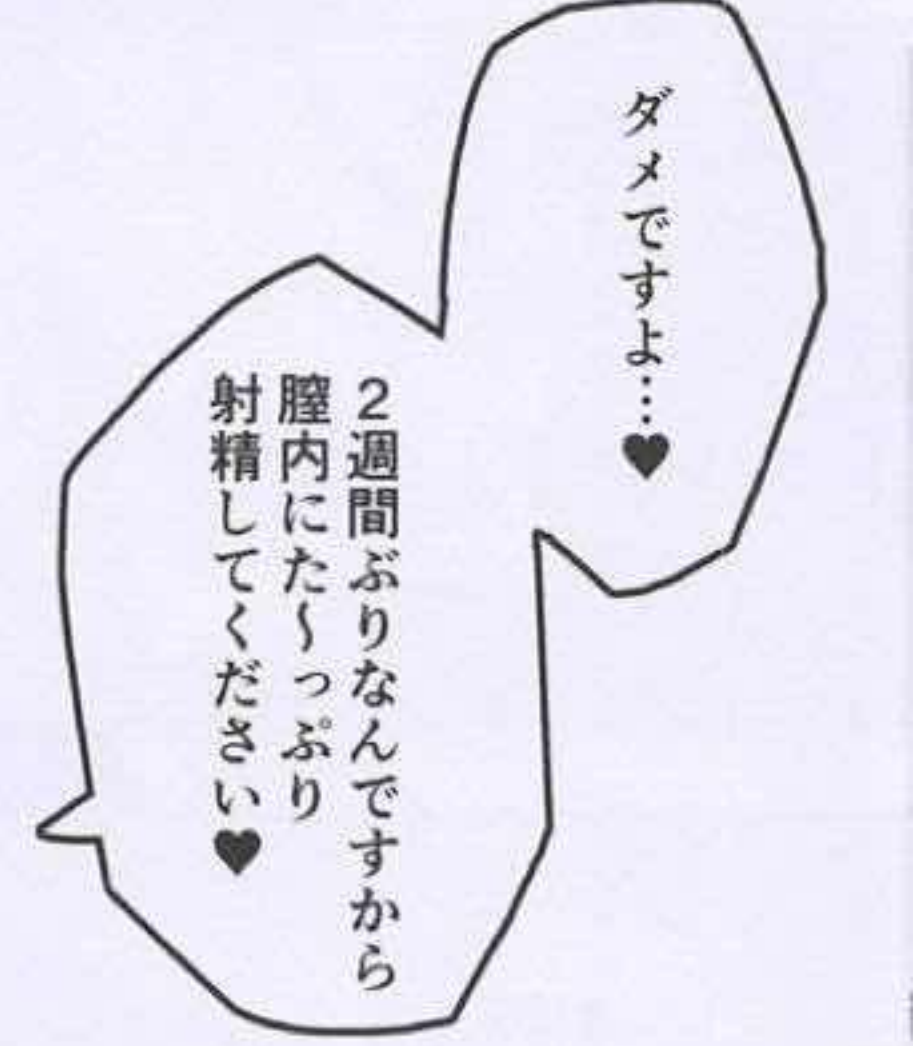 ダメですよ…♥
2週間ぶりなんですから
膣内にた〜っぷり
射精してください♥